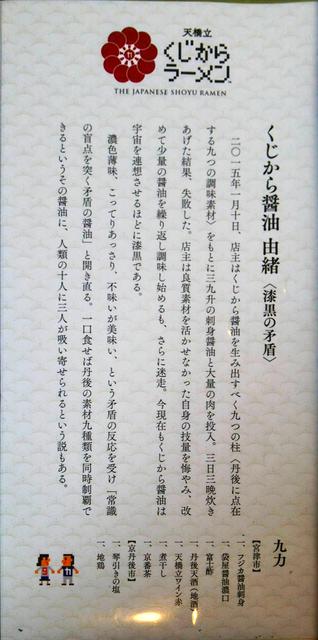 天橋立
くじから
ラーメン
THE JAPANESE SHOYU RAMEN
くじから醤油 由緒 〈漆黒の矛盾〉
二〇一五年一月十日、店主はくじから醤油を生み出すべく九つの柱〈丹後に点在
する九つの調味素材〉をもとに三九升の刺身醤油と大量の肉を投入。三日三晩炊き
あげた結果、失敗した。店主は良質素材を活かせなかった自身の技量を悔やみ、改
めて少量の醤油を繰り返し調味し始めるも、さらに迷走。今現在もくじから醤油は
宇宙を連想させるほどに漆黒である。
濃色薄味、こってりあっさり、不味いが美味い、という矛盾の反応を受け「常識
の盲点を突く矛盾の醤油」と開き直る。一口食せば丹後の素材九種類を同時制覇で
きるというその醤油に、人類の十人に三人が吸い寄せられるという説もある。
九力
【宮津市】
一、フジカ醤油刺身
一、袋屋醤油濃口
一、富士酢
一、丹後天酒(地酒)
一、天橋立ワイン赤
一、煮干し
一、京番茶
【京丹後市】
一、琴引きの塩
一、地鶏